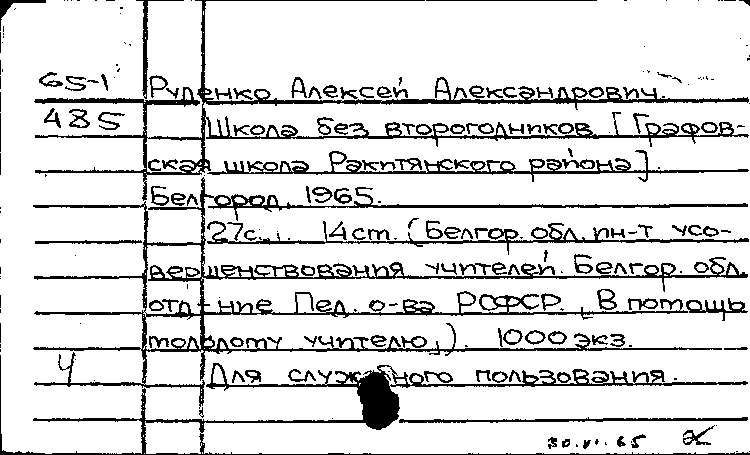 65-1 Руденко, Алексей Александрович.
485 Школа без второгодников [Графов-
ская школа Ракитянского района].
Белгород, 1965.
27с., 14 cm. (Белгор. обл. ин-т усо-
вершенствования учителей. Белгор. обл.
отд-ние Пед. о-ва РСФСР. „В помощь
молодому учителю"). 1000 экз.
Ч Для служебного пользования.
30.VI.65